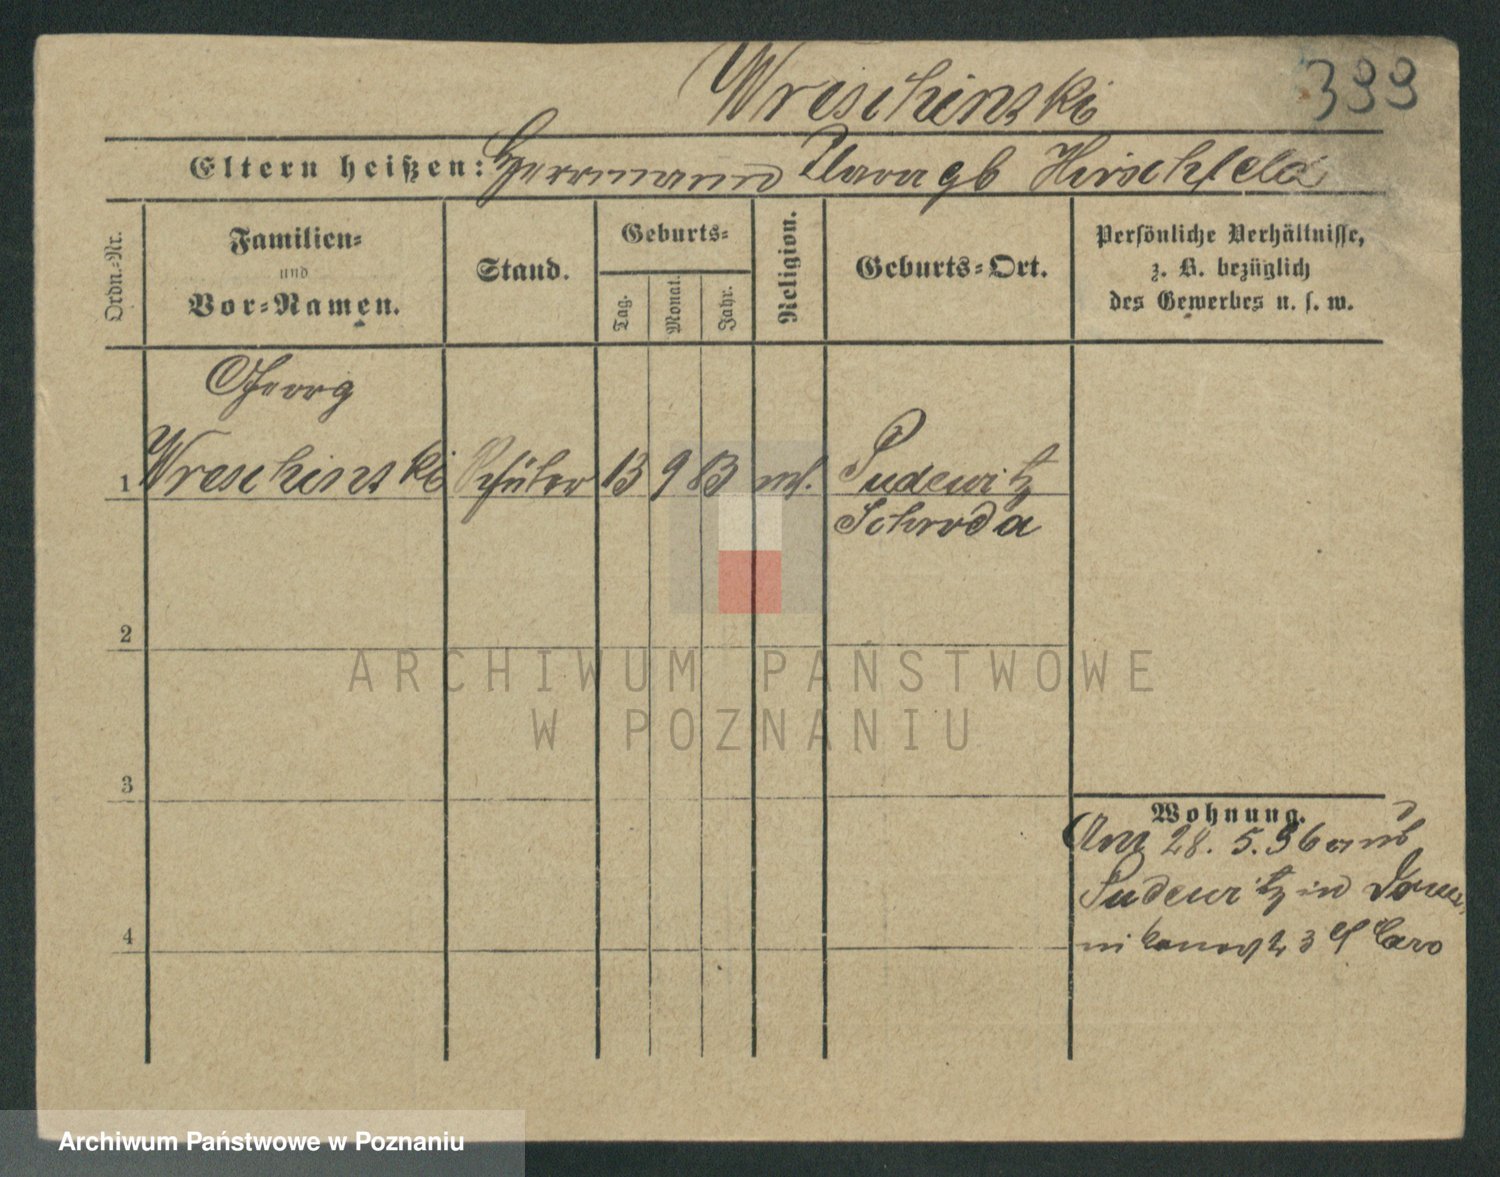 Wreschinski
399
Eltern heißen: Herrmann Clara gb Hirschfeld
Ordn.-Nr.
Familien-
und
Vor-Namen.
Stand.
Geburts-
Tag.
Monat.
Jahr.
Religion.
Geburts-Ort.
Persönliche Verhältnisse,
z. B. bezüglich
des Gewerbes u. s. w.
Georg
1 Wreschinski Schüler 13 9 83 ms. Pudewitz
Schroda
2
3
4
Wohnung.
Am 28. 5. 96 aus
Pudewitz in Domi
nikanerstr 3 Caro
ARCHIWUM PAŃSTWOWE
W POZNANIU
Archiwum Państwowe w Poznaniu